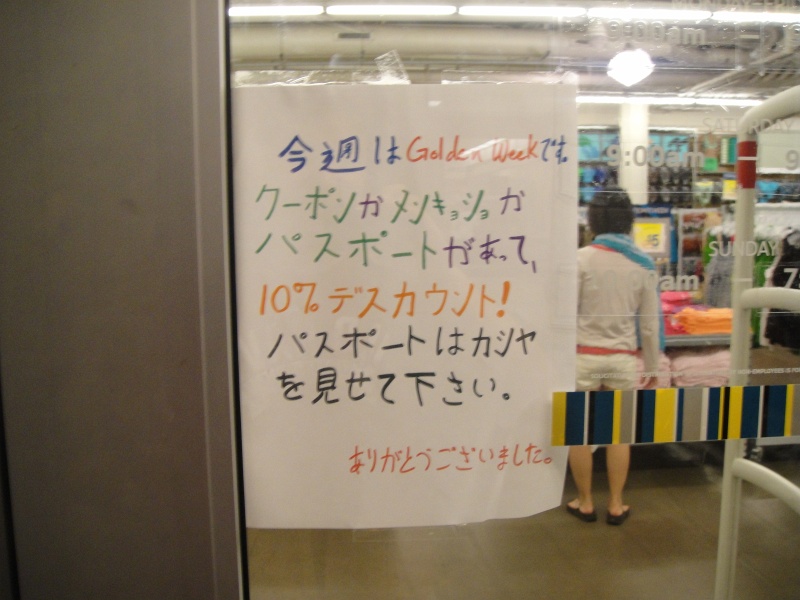 今週は Golden Weekです。
クーポンカ メンキョショカ
パスポートがあって、
10% デスカウント!
パスポートはカシヤ
を見せて下さい。
ありがとうございました。
9:00am
SATURDAY
9:00am
9
$5
SUNDAY
am
7